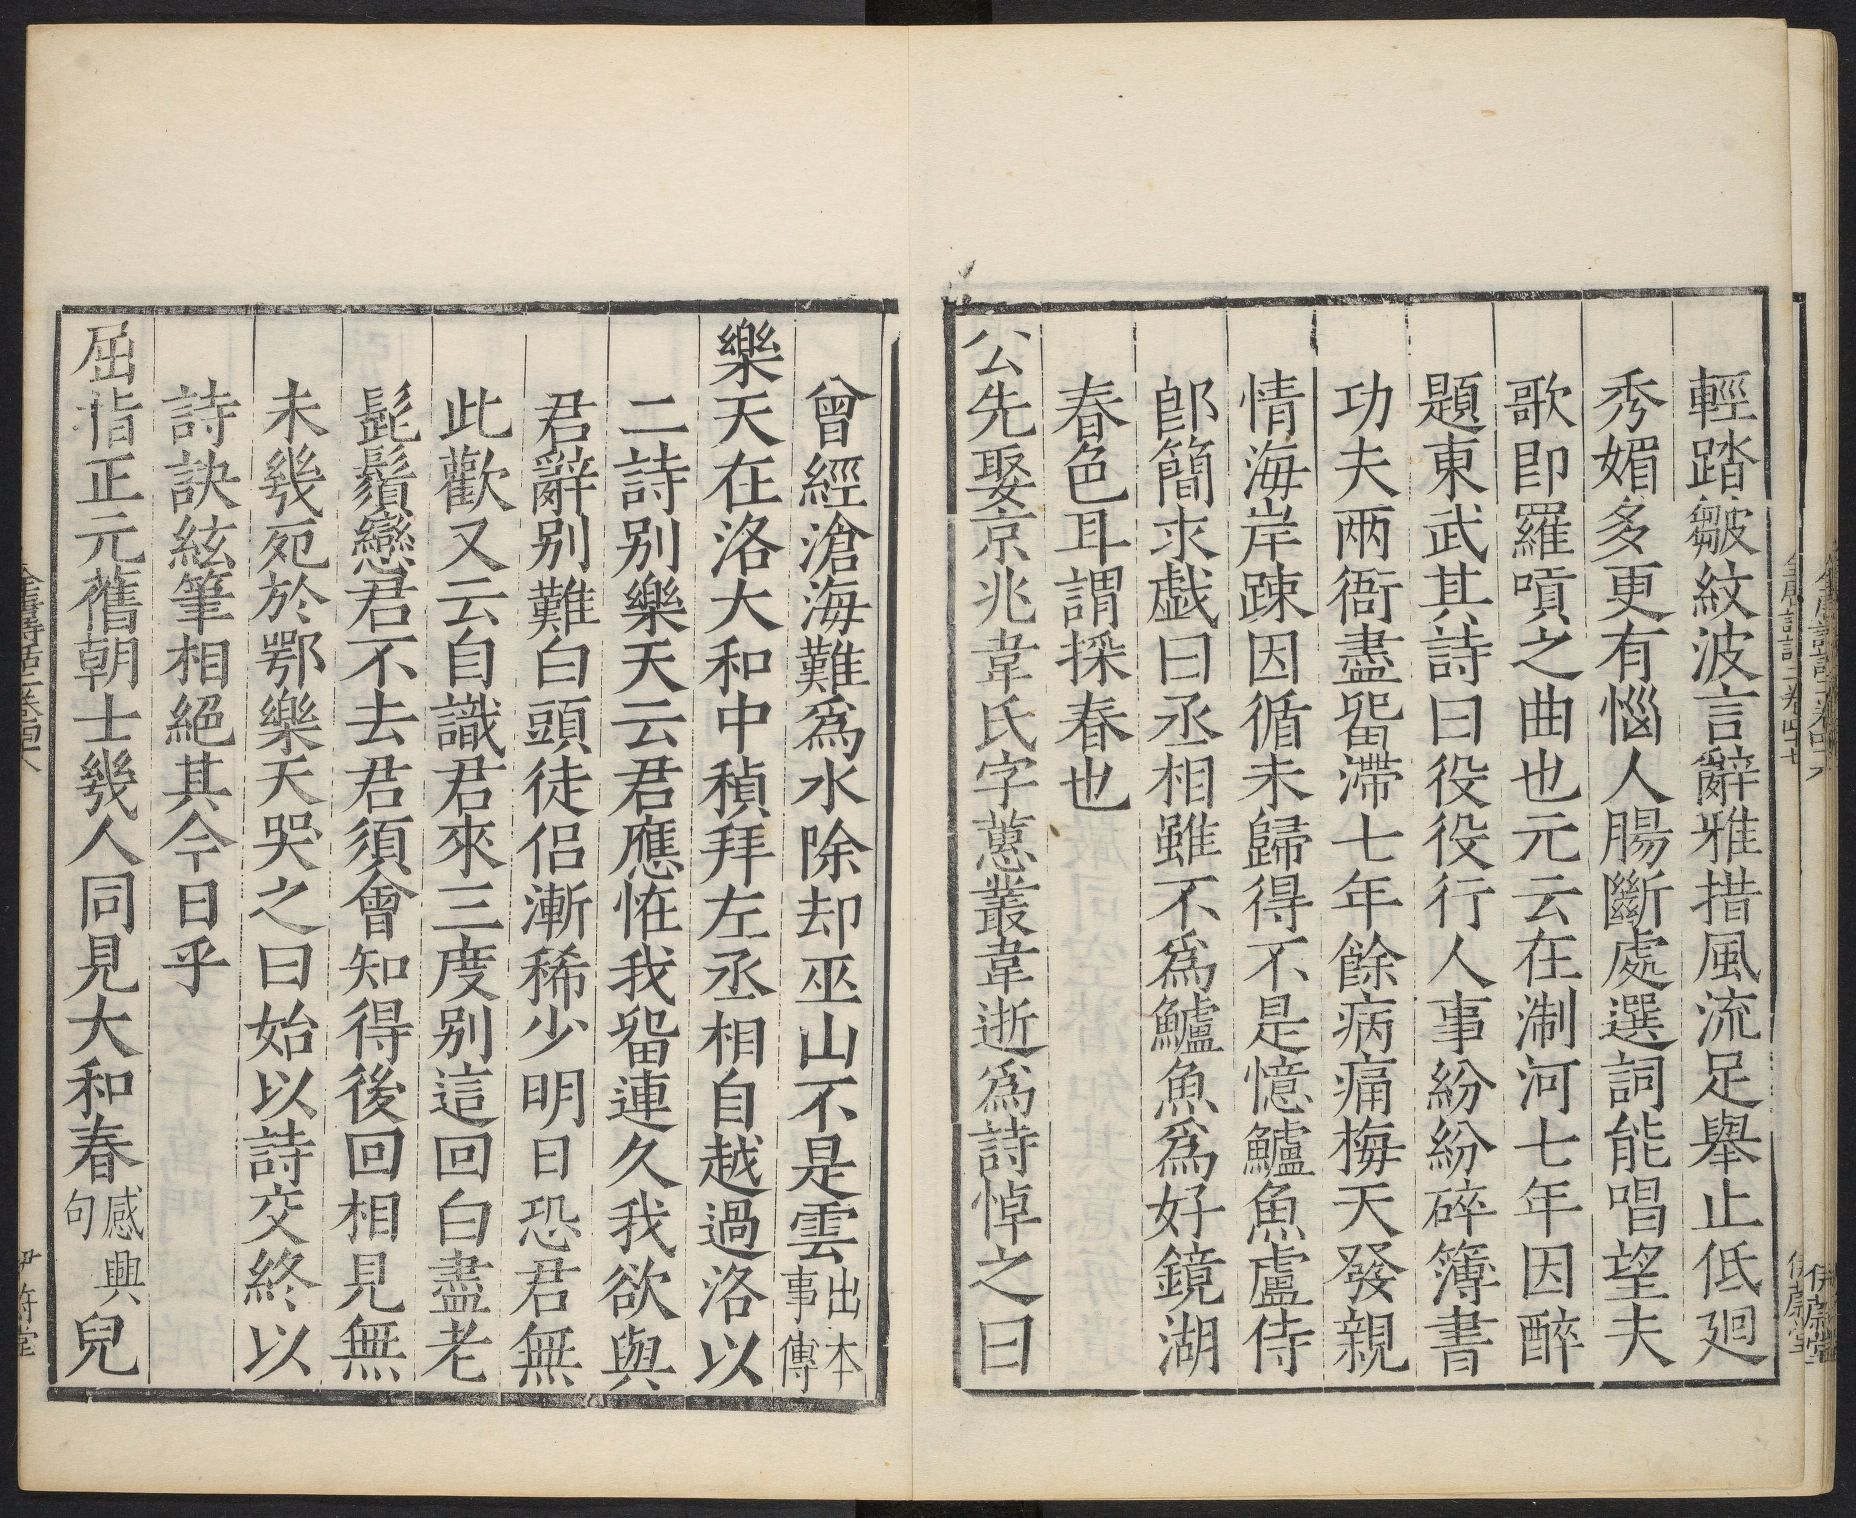 輕踏皺紋波言辭雅措風流足舉止低廻
秀媚多更有惱人腸斷處選詞能唱望夫
歌卽羅嗊之曲也元云在淛河七年因醉
題東武其詩曰役役行人事紛紛碎簿書
功夫两衙盡畱滯七年餘病痛梅天發親
情海岸踈因循未歸得不是憶鱸魚盧侍
郎簡求戯曰丞相雖不爲鱸魚爲好鏡湖
春色耳謂採春也
公先娶京兆韋氏字蕙叢韋逝爲詩悼之曰
曾經滄海難爲水除却巫山不是雲出本事傳
樂天在洛大和中稹拜左丞相自越過洛以
二詩别樂天云君應恠我畱連久我欲與
君辭别難白頭徒侣漸稀少明日恐君無
此歡又云自識君來三度别這回白盡老
髭鬚戀君不去君須會知得後回相見無
未幾死於鄂樂天哭之曰始以詩交終以
詩訣絃筆相絕其今日乎
屈指正元舊朝士幾人同見大和春感興句兒